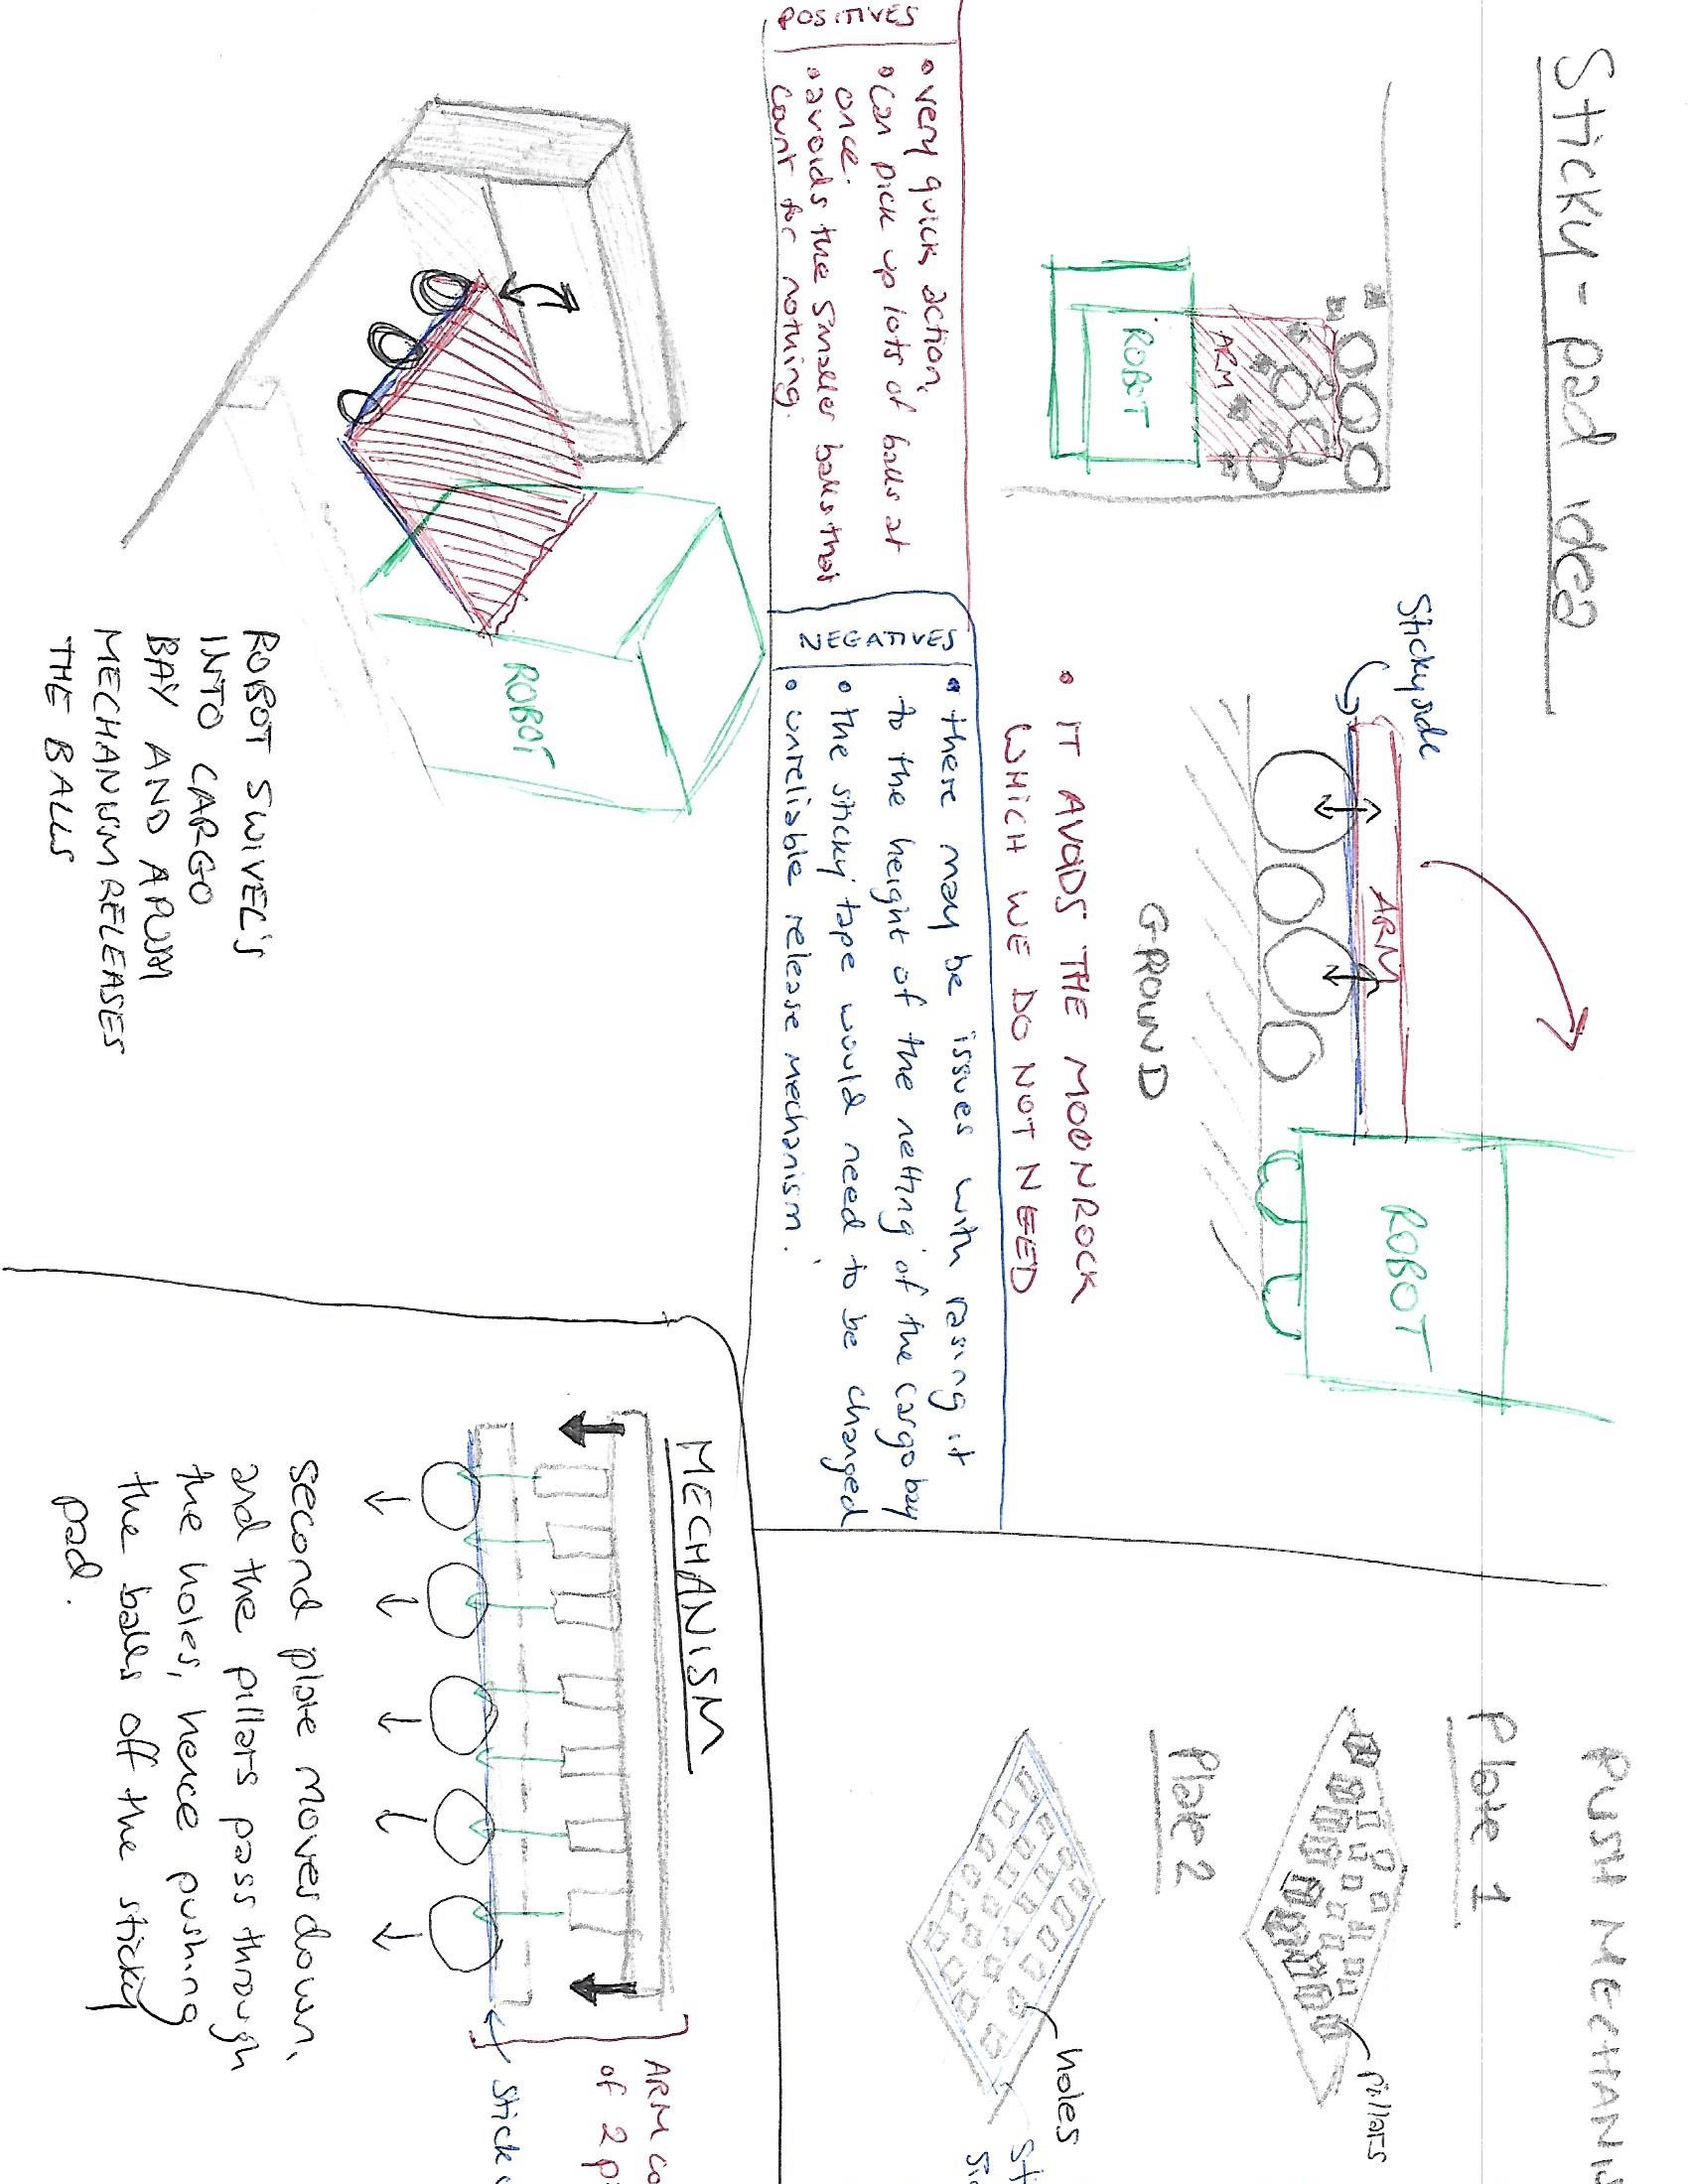 Sticky-pad idea
ROBOT
ARM
Stickyside
ARM
ROBOT
GROUND
• IT AVOIDS THE MOONROCK
WHICH WE DO NOT NEED
POSITIVES
• very quick action,
• can pick up lots of balls at
once.
• avoids the smaller balls that
count for nothing.
NEGATIVES
• there may be issues with rasing it
to the height of the netting of the cargobay
• the sticky tape would need to be changed
• unreliable release mechanism.
ROBOT
ROBOT SWIVEL'S
INTO CARGO
BAY AND A PUSH
MECHANISM RELEASES
THE BALLS
PUSH MECHANIS
Plate 1
pillars
Plate 2
holes
MECHANISM
ARM co
of 2 p
Stick
second plate moves down,
and the pillars pass through
the holes, hence pushing
the balls off the sticky
pad.